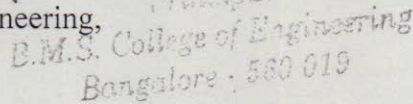 neering,
B.M.S. College of Engineering
Bangalore - 560 019